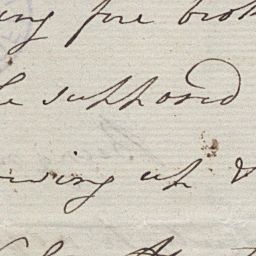 ing fire brok
e supposed
wing up &